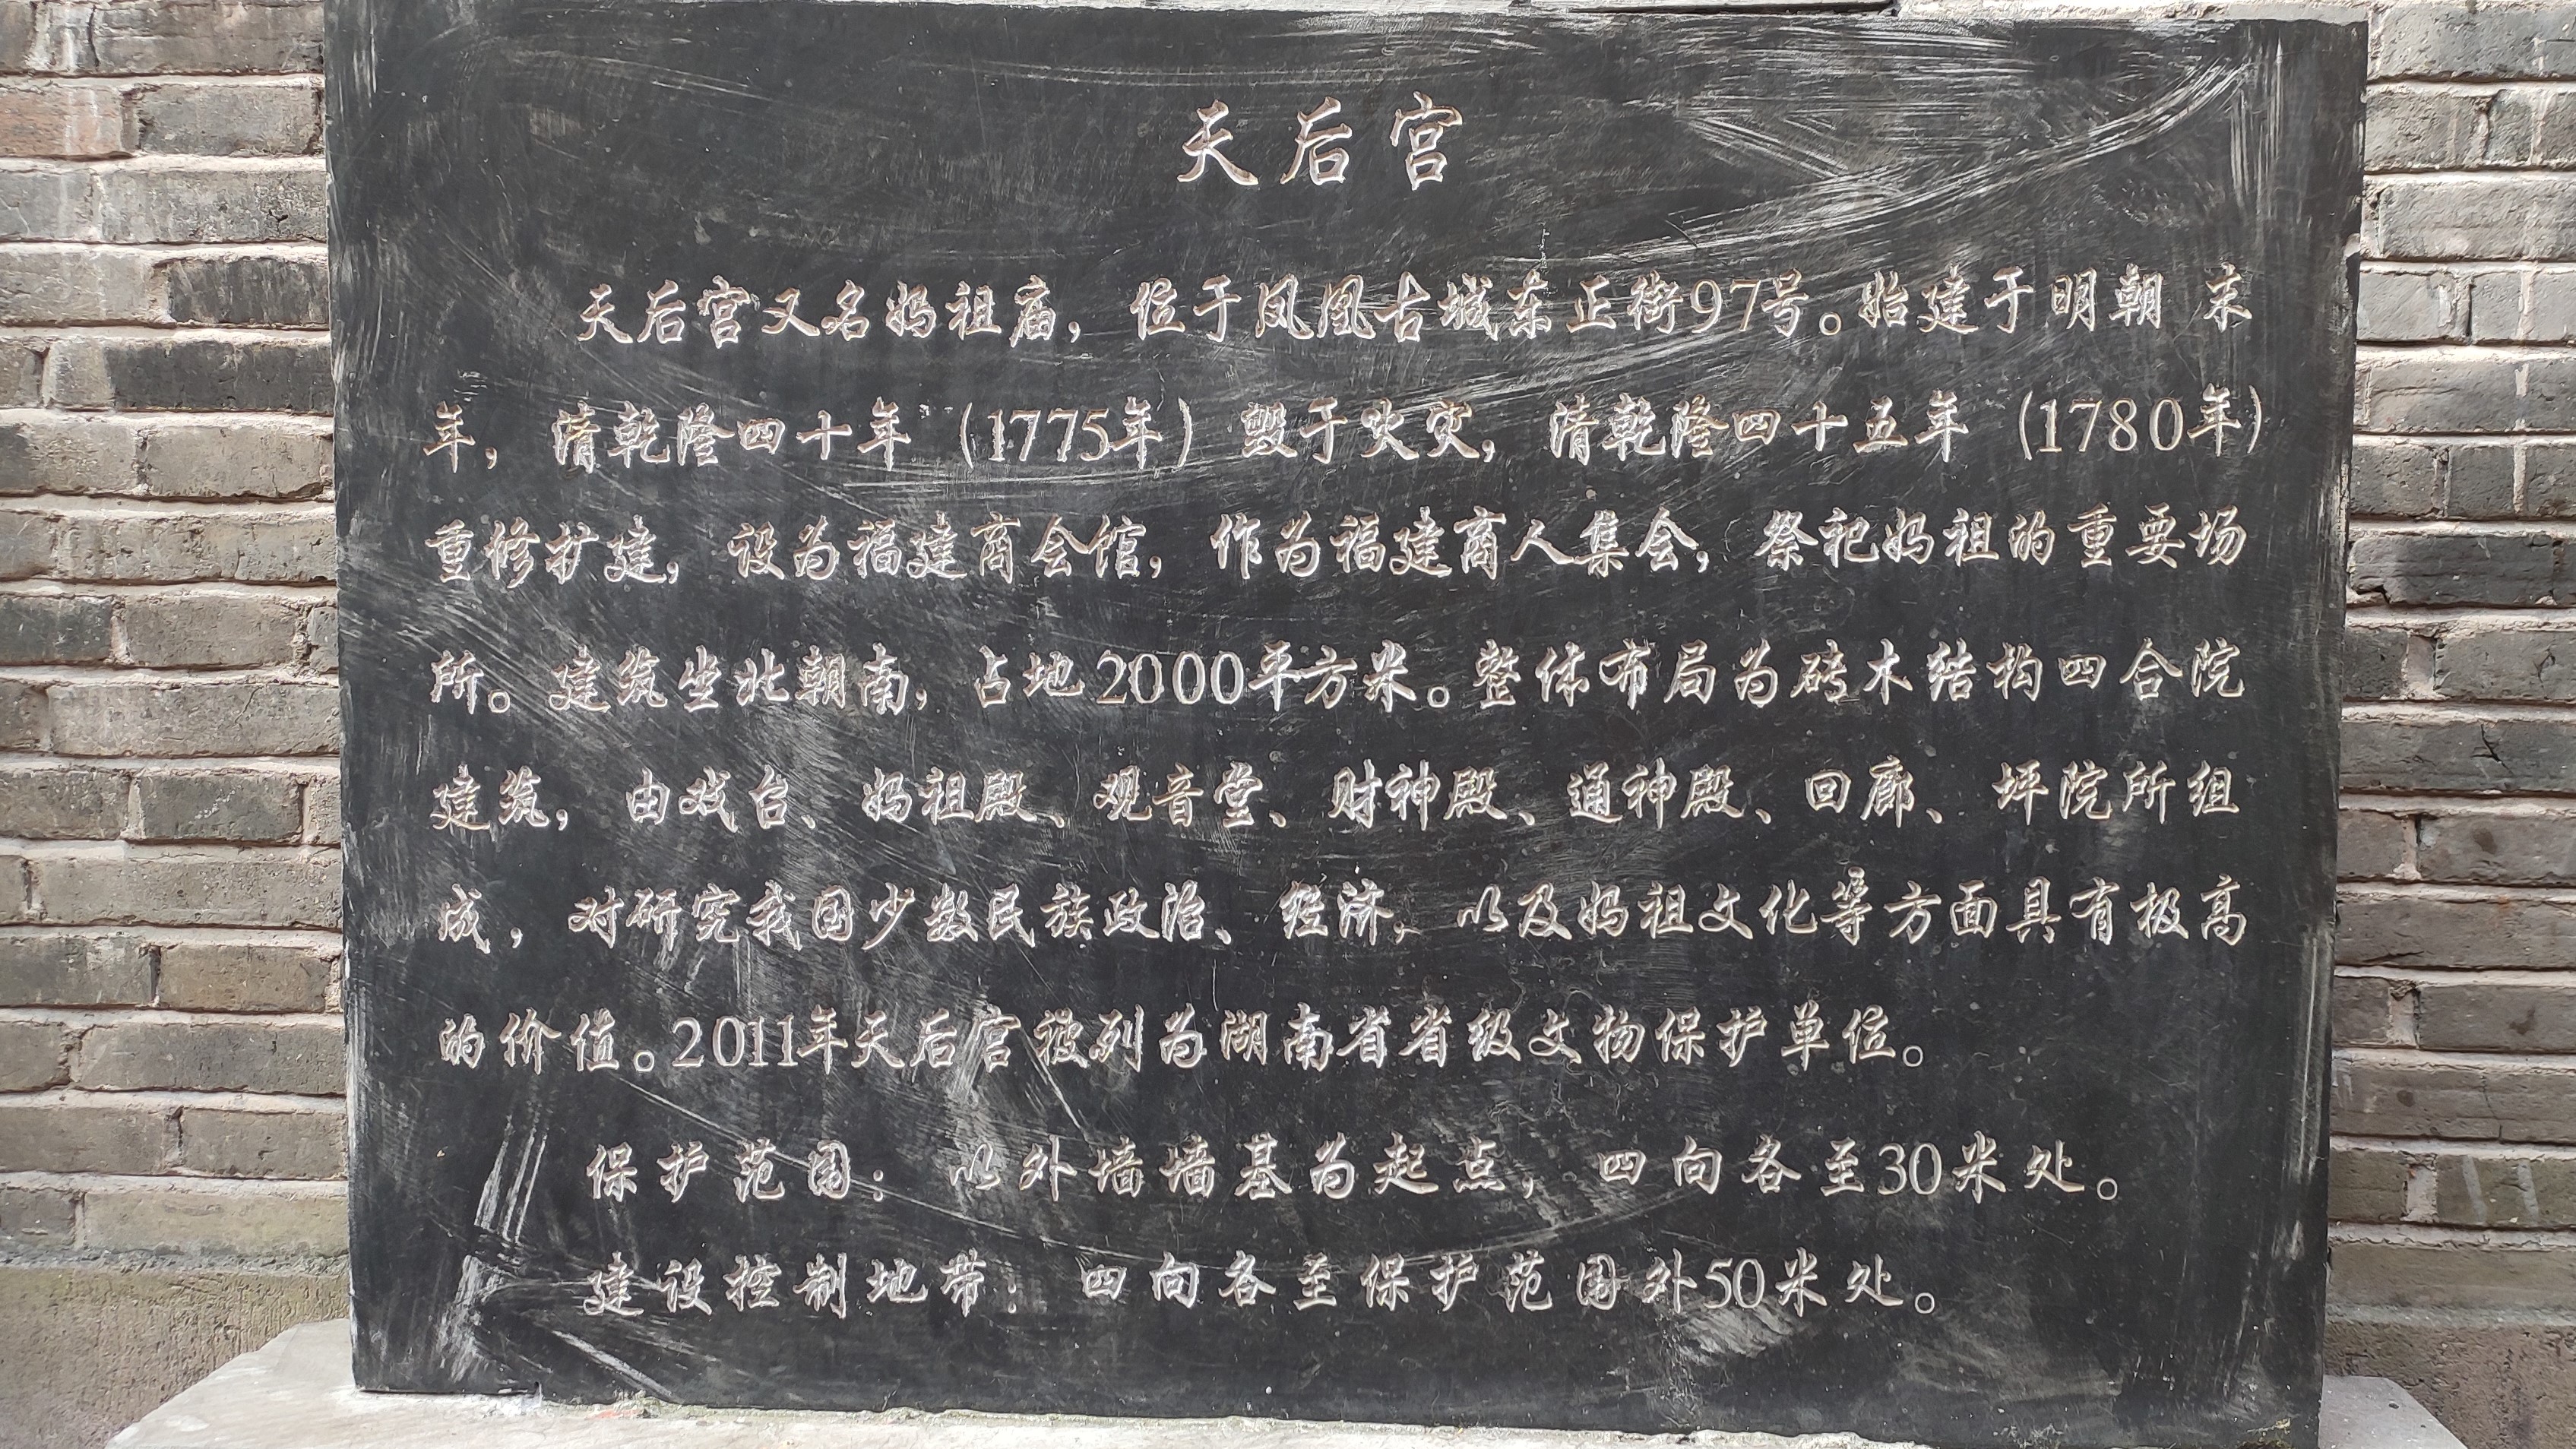 天后宫
天后宫又名妈祖庙，位于凤凰古城东正街97号。始建于明朝末
年，清乾隆四十年（1775年）毁于火灾，清乾隆四十五年（1780年）
重修扩建，设为福建商会馆，作为福建商人集会，祭祀妈祖的重要场
所。建筑坐北朝南，占地2000平方米。整体布局为砖木结构四合院
建筑，由戏台、妈祖殿、观音堂、财神殿、通神殿、回廊、坪院所组
成，对研究我国少数民族政治、经济，以及妈祖文化等方面具有极高
的价值。2011年天后宫被列为湖南省省级文物保护单位。
保护范围：以外墙墙基为起点，四向各至30米处。
建设控制地带：四向各至保护范围外50米处。